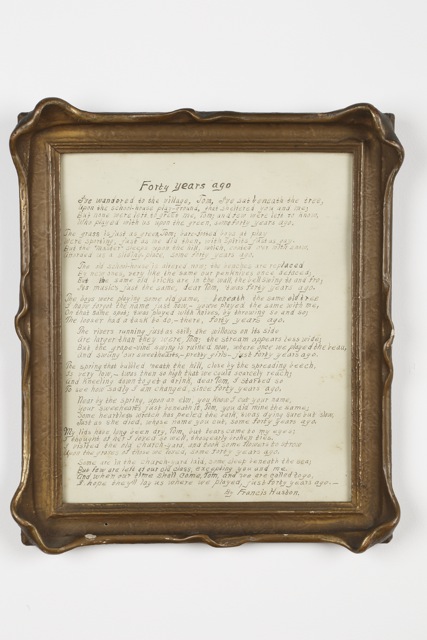 Forty years ago
I've wandered to the village, Tom, I've sat beneath the tree,
Upon the school-house play-ground, that sheltered you and me;
But none were left to greet me, Tom; and few were left to know,
Who played with us upon the green, some forty years ago.
The grass is just as green, Tom; bare-footed boys at play
Were sporting, just as we did then, with spirits just as gay.
But the "master" sleeps upon the hill, which, coated o'er with snow,
Afforded us a sliding-place, some forty years ago.
The old school-house is altered now; the benches are replaced
By new ones, very like the same our penknives once defaced;
But the same old bricks are in the wall, the bell swings to and fro;
Its music, just the same, dear Tom, 'twas forty years ago.
The boys were playing some old game, beneath the same old tree
I do forget the name just now, — you've played the same with me,
On that same spot; 'twas played with knives, by throwing so and so;
The loser had a task to do, — there, forty years ago.
The river's running just as still; the willows on its side
Are larger than they were, Tom; the stream appears less wide;
But the grape-vine swing is ruined now, where once we played the beau,
And swung our sweethearts, — pretty girls, — just forty years ago.
The spring that bubbled 'neath the hill, close by the spreading beech,
Is very low, — 'twas then so high that we could scarcely reach;
And kneeling down to get a drink, dear Tom, I started so
To see how sadly I am changed, since forty years ago.
Near by the spring, upon an elm, you know I cut your name,
Your sweetheart's just beneath it, Tom, you did mine the same;
Some heartless wretch has peeled the bark, 'twas dying sure but slow,
Just as she died, whose name you cut, some forty years ago.
My lids have long been dry, Tom, but tears came to my eyes;
I thought of her I loved so well, those early broken ties,
I visited the old church-yard, and took some flowers to strow
Upon the graves of those we loved, some forty years ago.
Some are in the church-yard laid, some sleep beneath the sea;
But few are left of our old class, excepting you and me
And when our time shall come, Tom, and we are called to go,
I hope they'll lay us where we played, just forty years ago. —
By Francis Huston.